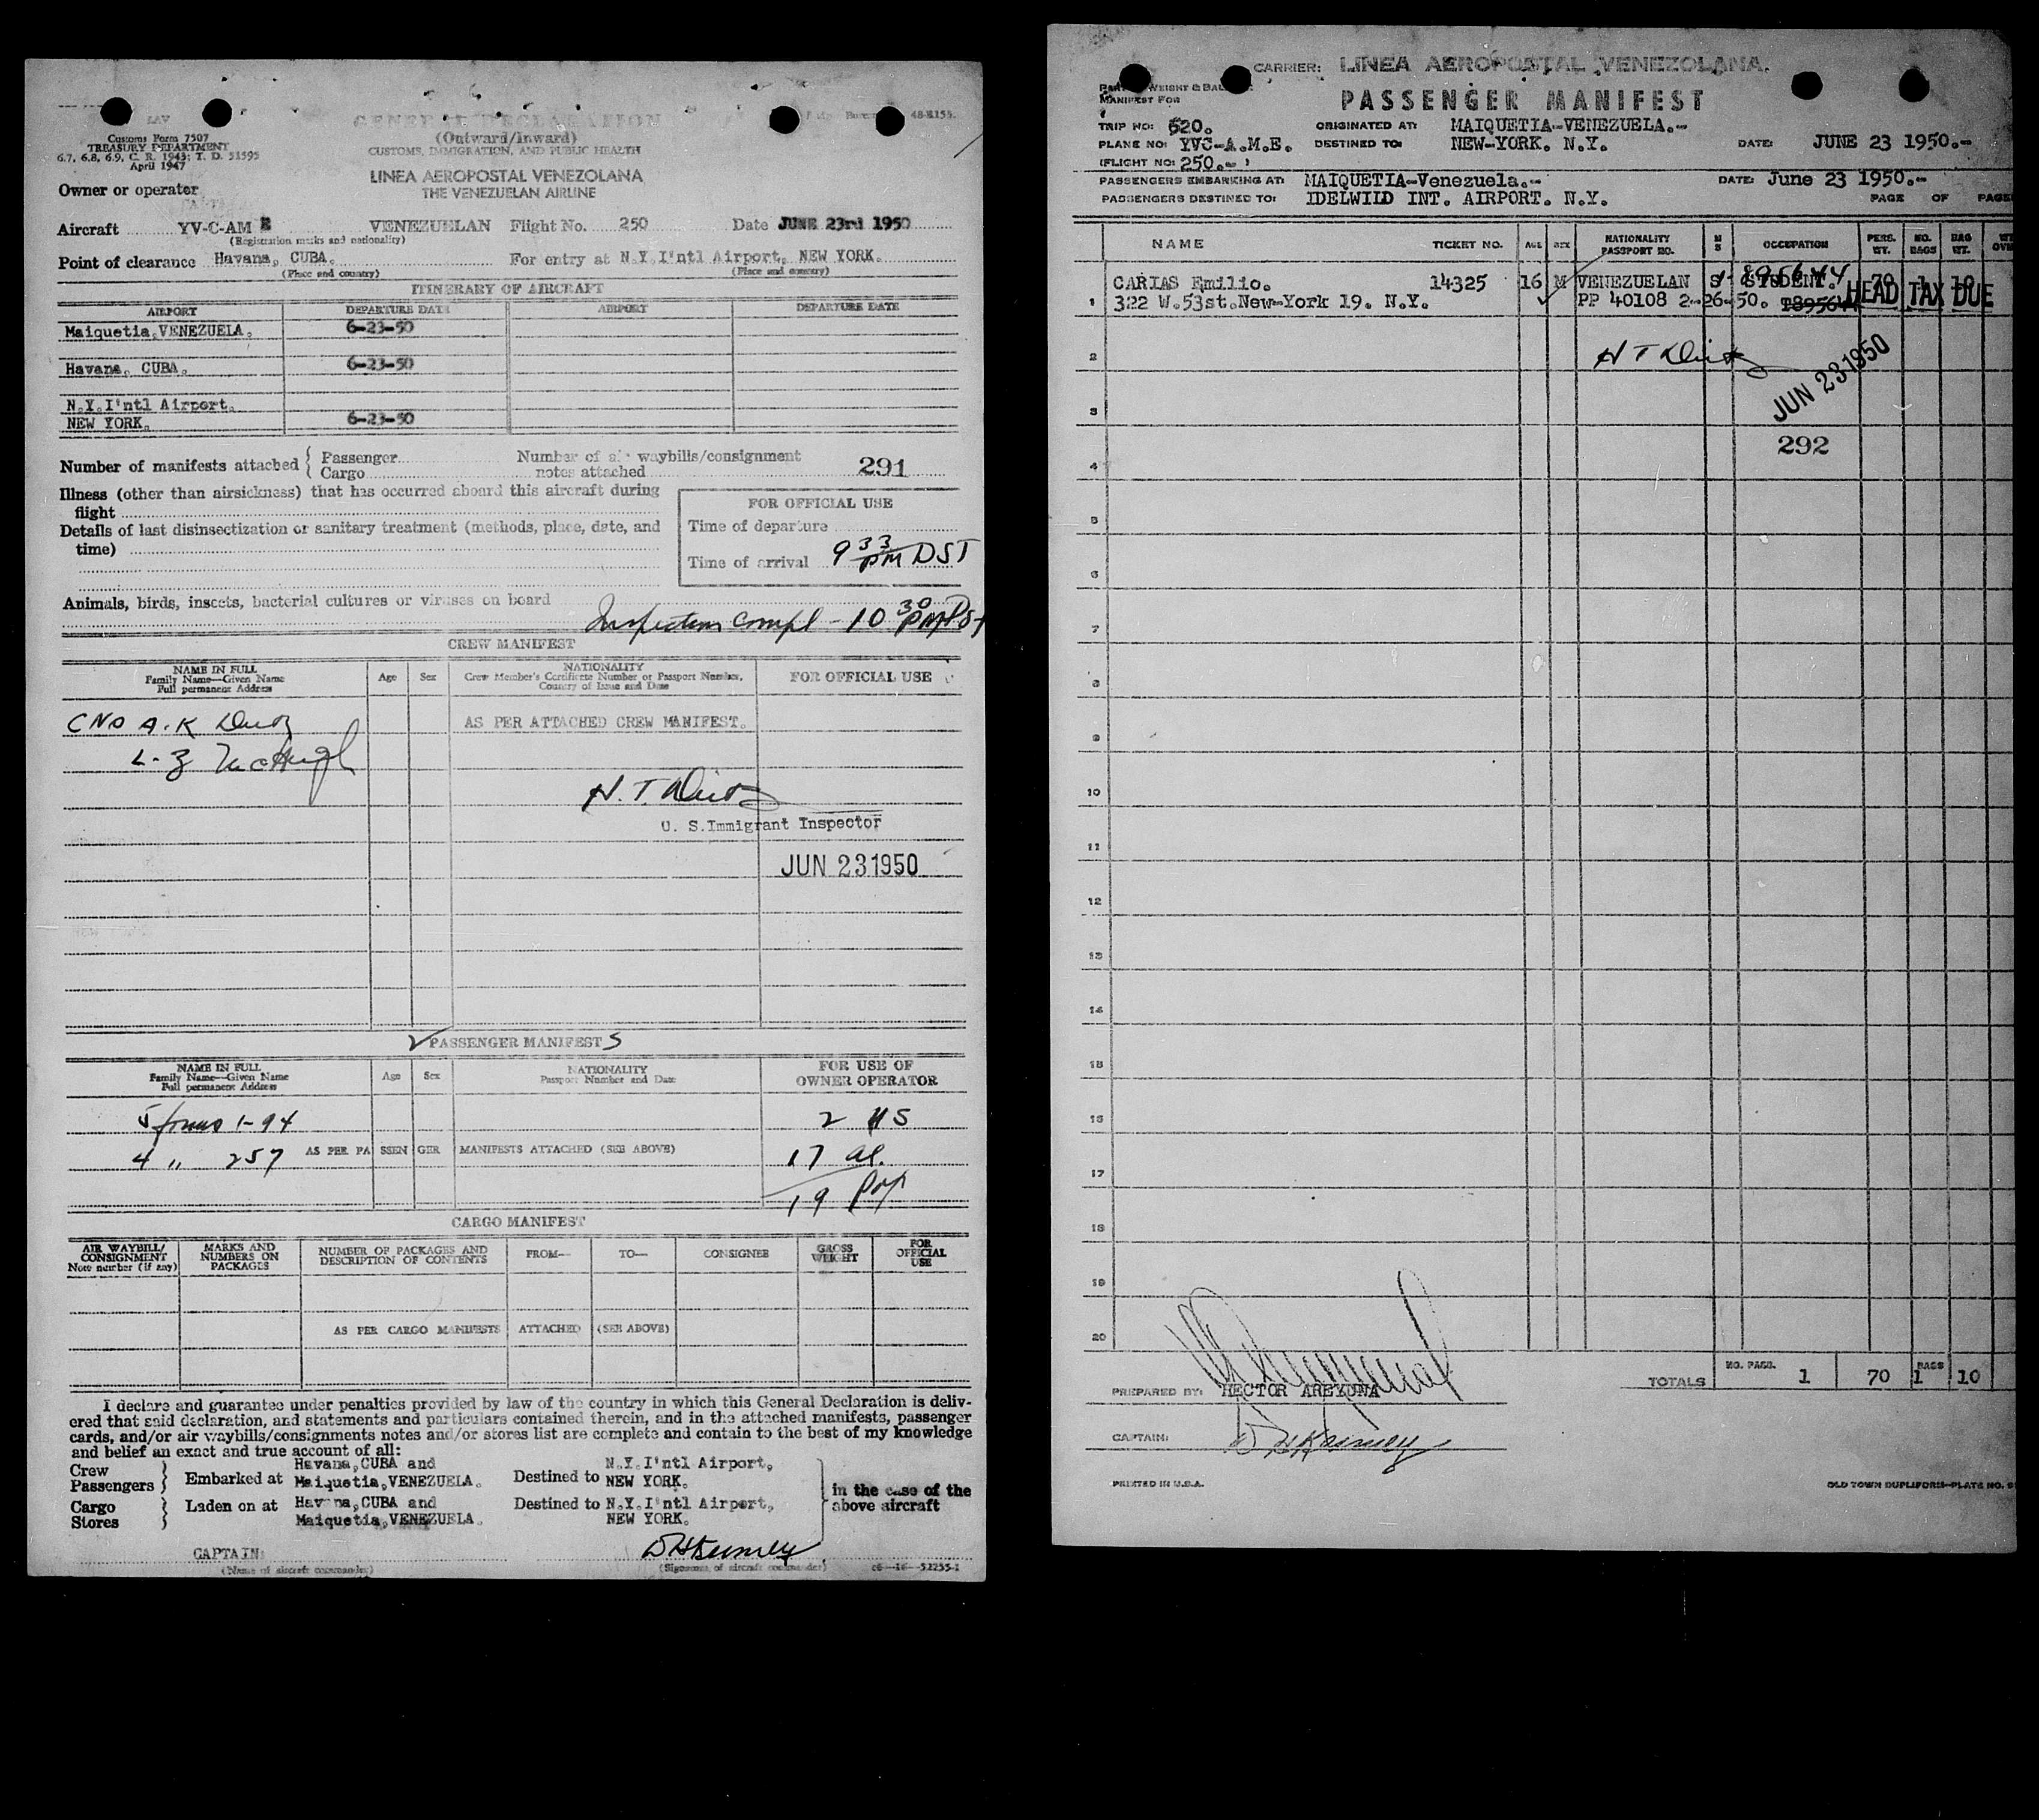 48-R155.
LAV
Customs Form 7507
TREASURY DEPARTMENT
6.7, 6.8, 6.9, C. R. 1943; T. D. 51595
April 1947
GENERAL DECLARATION
(Outward/Inward)
CUSTOMS, IMMIGRATION, AND PUBLIC HEALTH
LINEA AEROPOSTAL VENEZOLANA
THE VENEZUELAN AIRLINE
Owner or operator
Aircraft YV-C-AM E VENEZUELAN Flight No. 250 Date JUNE 23rd 1950
(Registration marks and nationality)
Point of clearance Havana, CUBA. For entry at N.Y.I'ntl Airport, NEW YORK.
(Place and country) (Place and country)
ITINERARY OF AIRCRAFT
AIRPORT DEPARTURE DATE AIRPORT DEPARTURE DATE
Maiquetia,VENEZUELA. 6-23-50
Havana, CUBA. 6-23-50
N.Y.I'ntl Airport,
NEW YORK. 6-23-50
Number of manifests attached { Passenger Number of air waybills/consignment
Cargo notes attached 291
Illness (other than airsickness) that has occurred aboard this aircraft during
flight
Details of last disinsectization or sanitary treatment (methods, place, date, and
time)
FOR OFFICIAL USE
Time of departure
Time of arrival 9 33 PM DST
Animals, birds, insects, bacterial cultures or viruses on board
Inspection compl - 10 30 PM DST
CREW MANIFEST
NAME IN FULL
Family Name—Given Name
Full permanent Address
Age Sex
NATIONALITY
Crew Member's Certificate Number or Passport Number,
Country of Issue and Date
FOR OFFICIAL USE
AS PER ATTACHED CREW MANIFEST.
H. T.
U. S.Immigrant Inspector
JUN 23 1950
PASSENGER MANIFESTS
NAME IN FULL
Family Name—Given Name
Full permanent Address
Age Sex
NATIONALITY
Passport Number and Date
FOR USE OF
OWNER OPERATOR
5 forms 1-94 2 US
4 " 257 AS PER PASSENGER MANIFESTS ATTACHED (SEE ABOVE) 17 al.
19
CARGO MANIFEST
AIR WAYBILL/
CONSIGNMENT
Note number (if any)
MARKS AND
NUMBERS ON
PACKAGES
NUMBER OF PACKAGES AND
DESCRIPTION OF CONTENTS
FROM— TO— CONSIGNEE
GROSS
WEIGHT
FOR
OFFICIAL
USE
AS PER CARGO MANIFESTS ATTACHED (SEE ABOVE)
I declare and guarantee under penalties provided by law of the country in which this General Declaration is deliv-
ered that said declaration, and statements and particulars contained therein, and in the attached manifests, passenger
cards, and/or air waybills/consignments notes and/or stores list are complete and contain to the best of my knowledge
and belief an exact and true account of all:
Crew
Passengers } Embarked at Havana,CUBA and
Maiquetia,VENEZUELA. Destined to N.Y.I'ntl Airport,
NEW YORK.
Cargo
Stores } Laden on at Havana,CUBA and
Maiquetia,VENEZUELA. Destined to N.Y.I'ntl Airport,
NEW YORK.
} in the case of the
above aircraft
CAPTAIN:
(Name of aircraft commander) (Signature of aircraft commander) c6—16—52255-1
CARRIER: LINEA AEROPOSTAL VENEZOLANA.
WEIGHT &
MANIFEST FOR
PASSENGER MANIFEST
TRIP NO: 520. ORIGINATED AT: MAIQUETIA-VENEZUELA.-
PLANE NO: YVC-A.M.E. DESTINED TO: NEW-YORK. N.Y. DATE: JUNE 23 1950.-
(FLIGHT NO: 250.- )
PASSENGERS EMBARKING AT: MAIQUETIA-Venezuela.- DATE: June 23 1950.-
PASSENGERS DESTINED TO: IDELWILD INT. AIRPORT. N.Y. PAGE OF PAGE
NAME TICKET NO. AGE SEX NATIONALITY
PASSPORT NO. M
S OCCUPATION PERS.
WT. NO.
BAGS BAG
WT.
1 CARIAS Emilio. 14325 16 M VENEZUELAN S STUDENT. 70 1 10
322 W.53st.New-York 19. N.Y. PP 40108 2-26-50.
HEAD TAX DUE
2 H T
JUN 23 1950
3
292
4
5
6
7
8
9
10
11
12
13
14
15
16
17
18
19
20
TOTALS NO. PASS. 1 70 BAGS 1 10
PREPARED BY: HECTOR AREYUNA
CAPTAIN:
PRINTED IN U.S.A. OLD TOWN DUPLIFORM—PLATE NO.